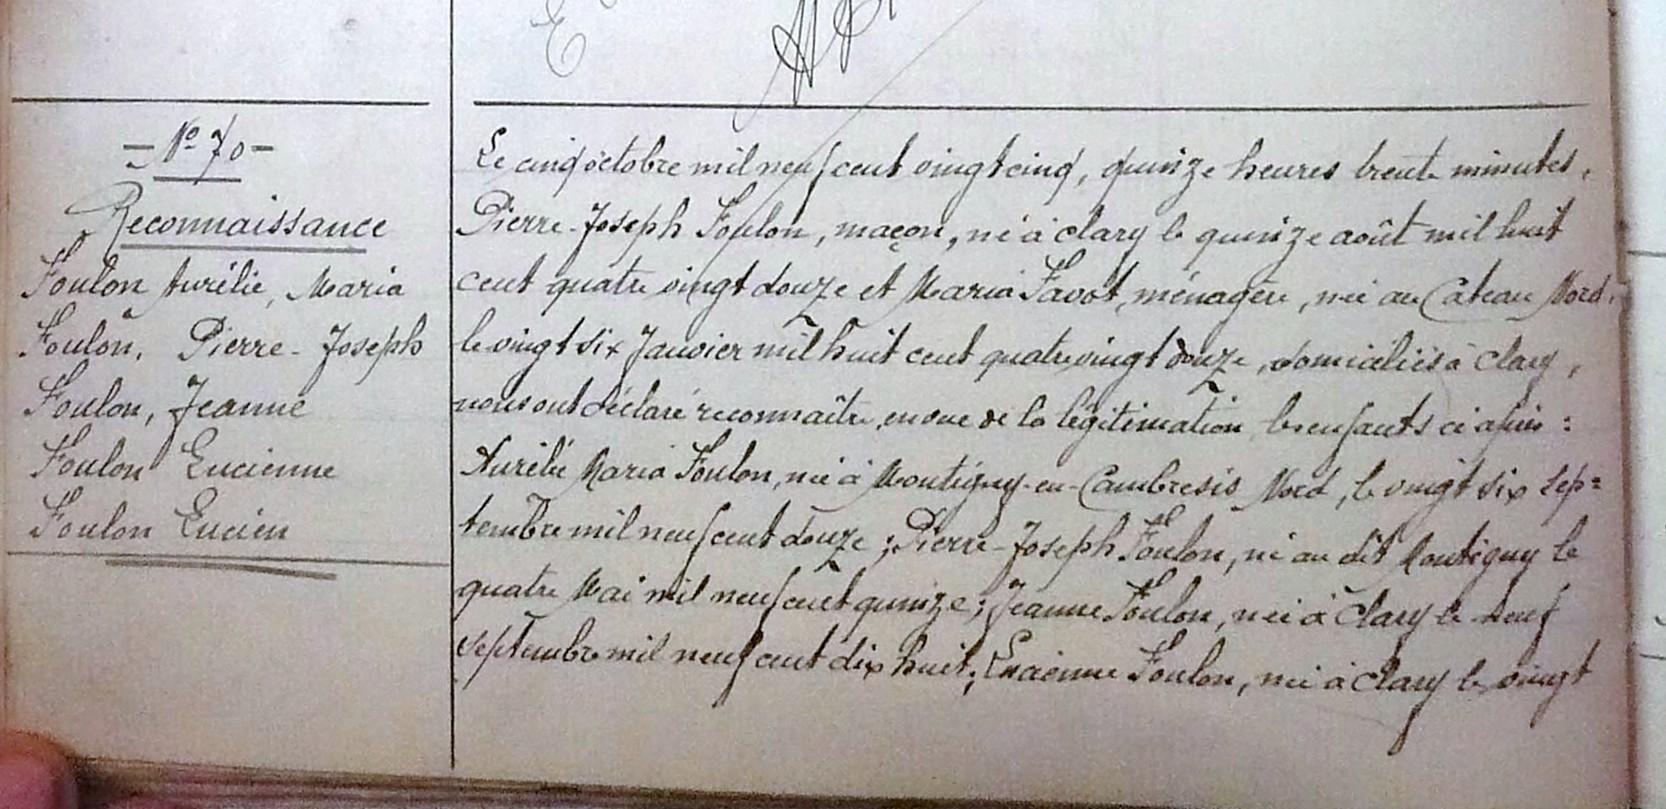 - N° 70 -
Reconnaissance
Foulon Aurélie, Maria
Foulon, Pierre-Joseph
Foulon, Jeanne
Foulon Lucienne
Foulon Lucien
Le cinq octobre mil neuf cent vingt cinq, quinze heures trente minutes,
Pierre-Joseph Foulon, maçon, né à Clary le quinze août mil huit
cent quatre vingt douze et Maria Favot, ménagère, née au Cateau Nord,
le vingt six Janvier mil huit cent quatre vingt douze, domiciliés à Clary,
nous ont déclaré reconnaître, en vue de la légitimation, les enfants ci après :
Aurélie Maria Foulon, née à Montigny-en-Cambresis Nord, le vingt six Sep=
tembre mil neuf cent douze ; Pierre-Joseph Foulon, né au dit Montigny le
quatre Mai mil neuf cent quinze ; Jeanne Foulon, née à Clary le neuf
septembre mil neuf cent dix huit ; Lucienne Foulon, née à Clary le vingt